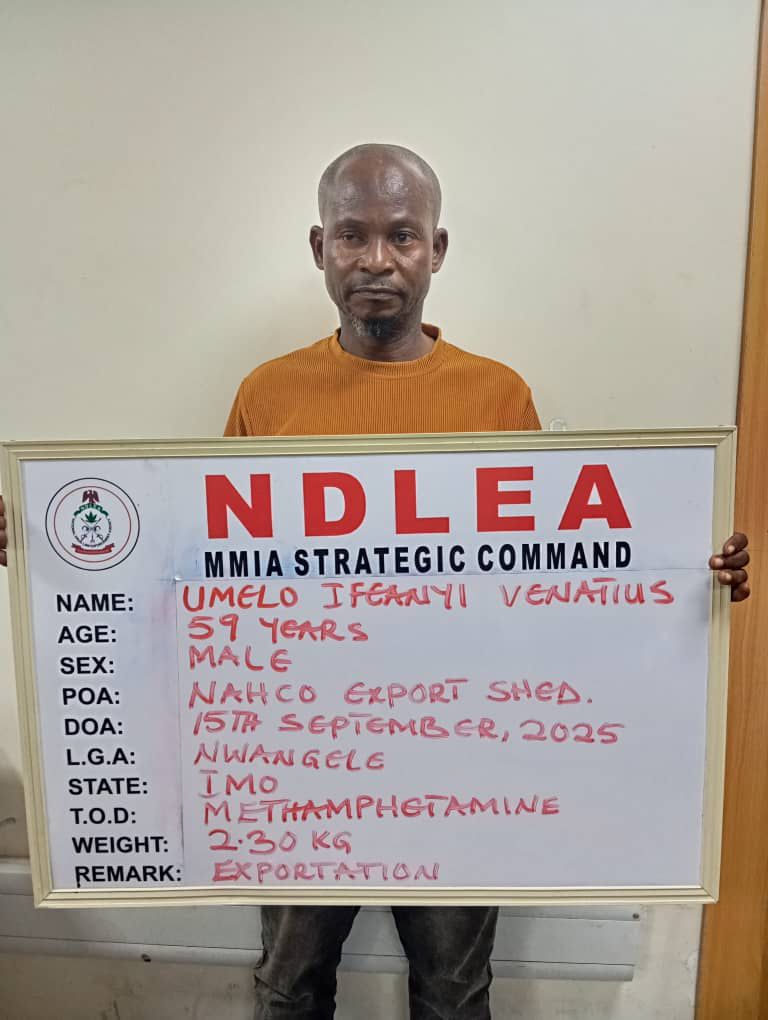 NDLEA
MMIA STRATEGIC COMMAND
NAME: UMELO IFEANYI VENATIUS
AGE: 59 YEARS
SEX: MALE
POA: NAHCO EXPORT SHED.
DOA: 15TH SEPTEMBER, 2025
L.G.A: NWANGELE
STATE: IMO
T.O.D: METHAMPHETAMINE
WEIGHT: 2.30 KG
REMARK: EXPORTATION